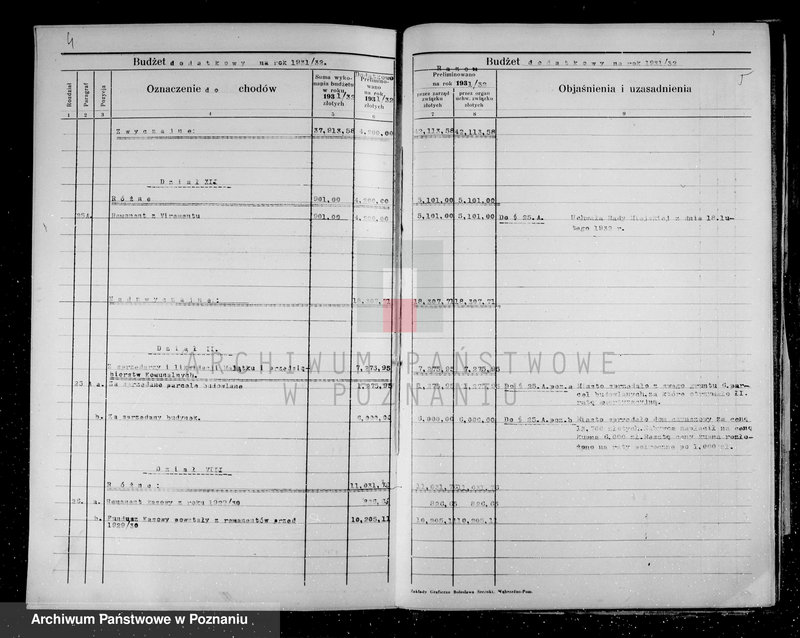 4
Budżet dodatkowy na rok 1931/32.
Rozdział
Paragraf
Pozycja
Oznaczenie do chodów
Suma wyko-
nania budżetu
w roku
1931/32
złotych
Dodatkowo
Prelimino-
wano
na rok
1931/32
złotych
1 2 3 4 5 6
Zwyczajne: 37,913,58 4,200,00
Dział XII
Różne 901,00 4,200,00
25 A. Remanent z Viramentu 901,00 4,200,00
Nadzwyczajne: 18,307,71
Dział II.
Z sprzedarzy i likwidacji Majątku i przedsię-
biorstw Komunalnych. 7,275,95
25 A a. Za sprzedane parcele budowlane 1,275,95
b. Za sprzedany budynek. 6,000,00
Dział VIII
Różne: 11,031,76
26. a. Remanent kasowy z roku 1929/30
b. Fundusz Kasowy powstały z remanentów przed
1929/30 10,205,11
Budżet dodatkowy na rok 1931/32
5
Razem
Preliminowano
na rok 1931/32
przez zarząd
związku
złotych
przez organ
uchw. związku
złotych
Objaśnienia i uzasadnienia
7 8 9
42,113,58 42,113,58
5,101,00 5,101,00
5,101,00 5,101,00 Do § 25.A. Uchwała Rady Miejskiej z dnia 18.lu-
tego 1932 r.
18,307,71 18,307,71
7,275,95 7,275,95
1,275,95 1,275,95 Do § 25.A.poz.a Miasto sprzedało z swego gruntu 6.par-
cel budowlanych, za które otrzymano II.
ratę
6,000,00 6,000,00 Do § 25.A.poz.b Miasto sprzedało dom czynszowy za cenę
złotych. Nabywca zapłacił na cenę
kupna 6,000 zł. Resztę ceny kupna rozło-
żono na raty po 1,000 zł.
11,031,76 11,031,76
826,65 826,65
10,205,11 10,205,11
Zakłady Graficzne Bolesława Szczuki, Wąbrzeźno-Pom.
ARCHIWUM PAŃSTWOWE
W POZNANIU
Archiwum Państwowe w Poznaniu